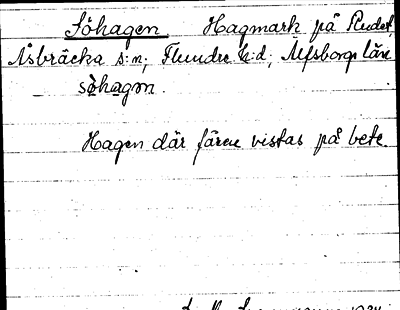 Söhagen. Hagmark på Rudet,
Åsbräcka s:n; Flundre h:d; Älfsborgs län.
söhagən.
Hagen där fåren vistas på bete.